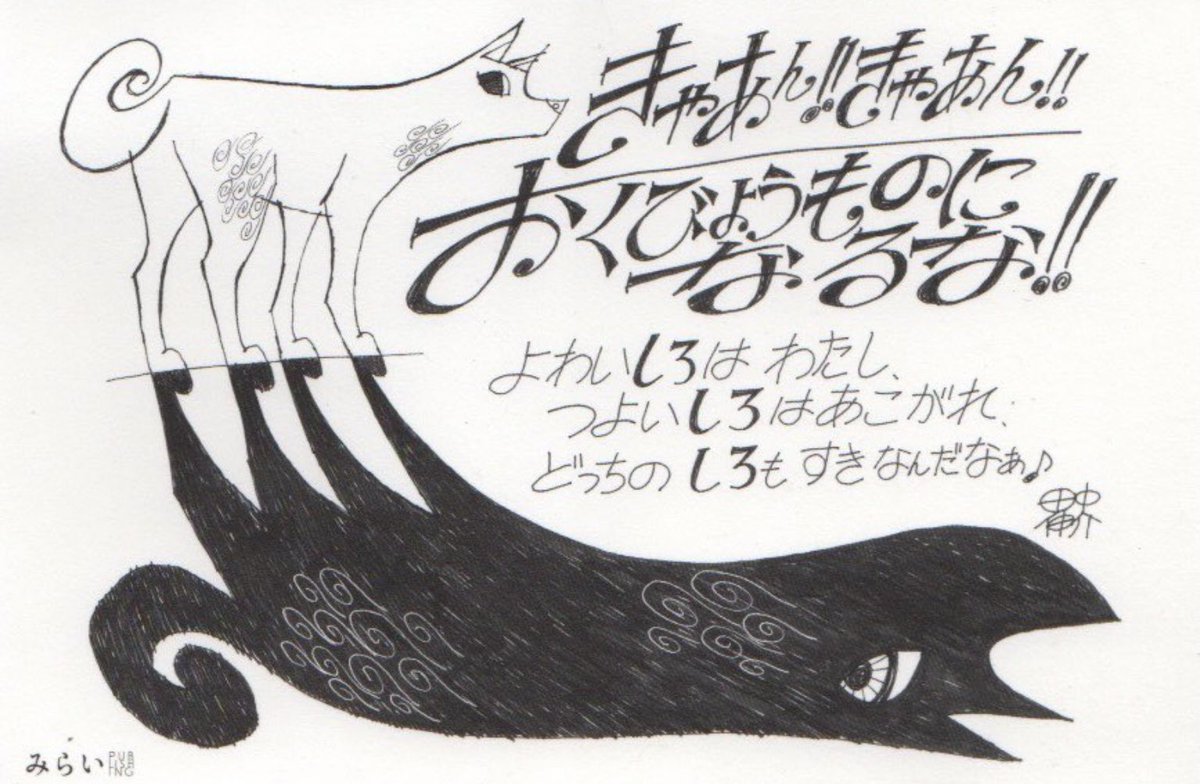 きゃあん!!きゃあん!!
おくびょうものに
なるな!!
よわいしろは わたし、
つよいしろはあこがれ、
どっちの しろも すきなんだなぁ♪
みらい PUBLISHING